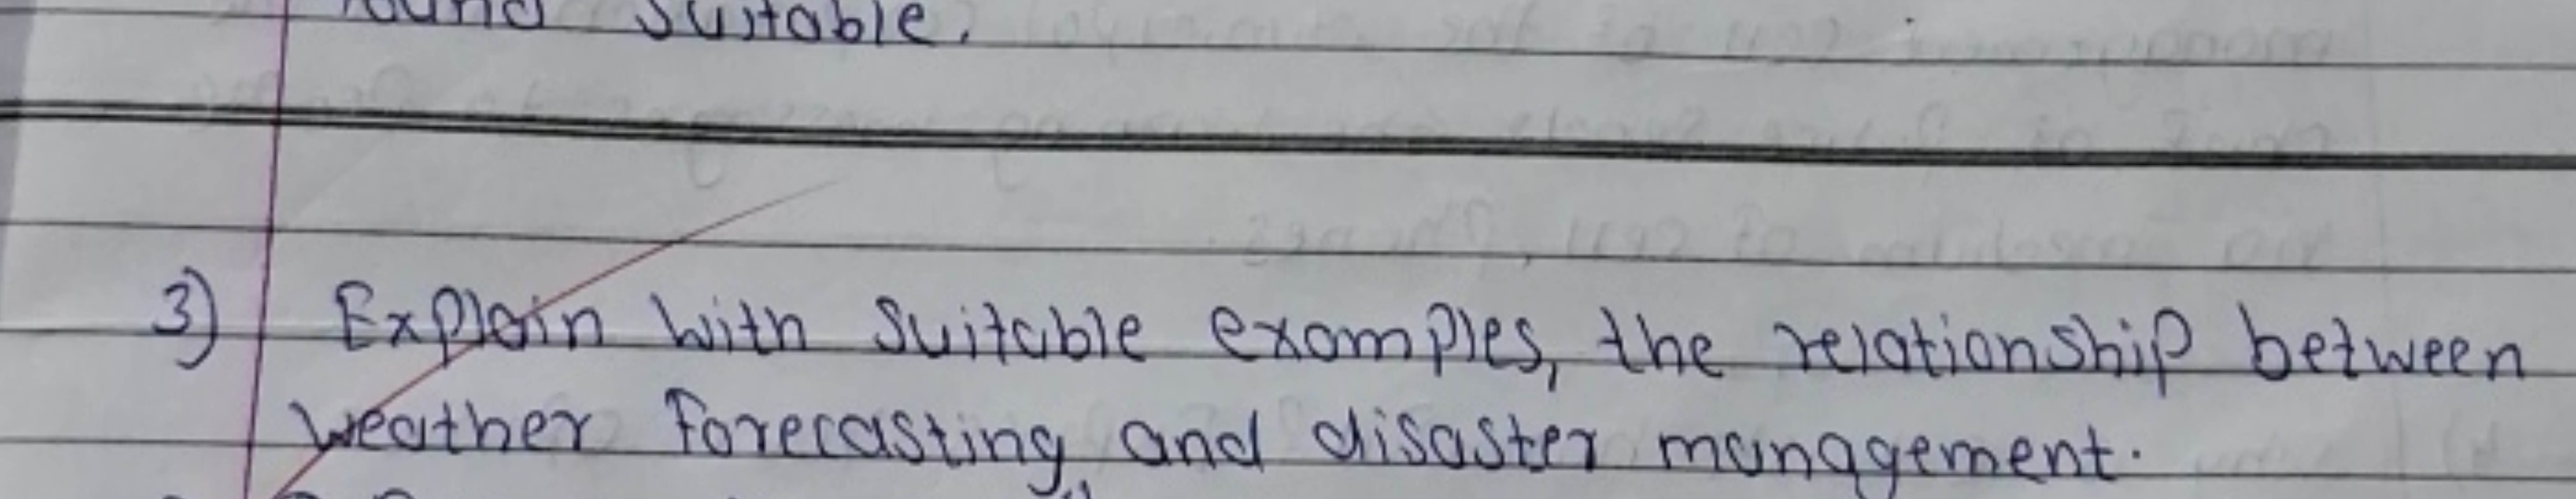 found suitable.
3) Explain with suitable examples, the relationship between
weather forecasting and disaster management.